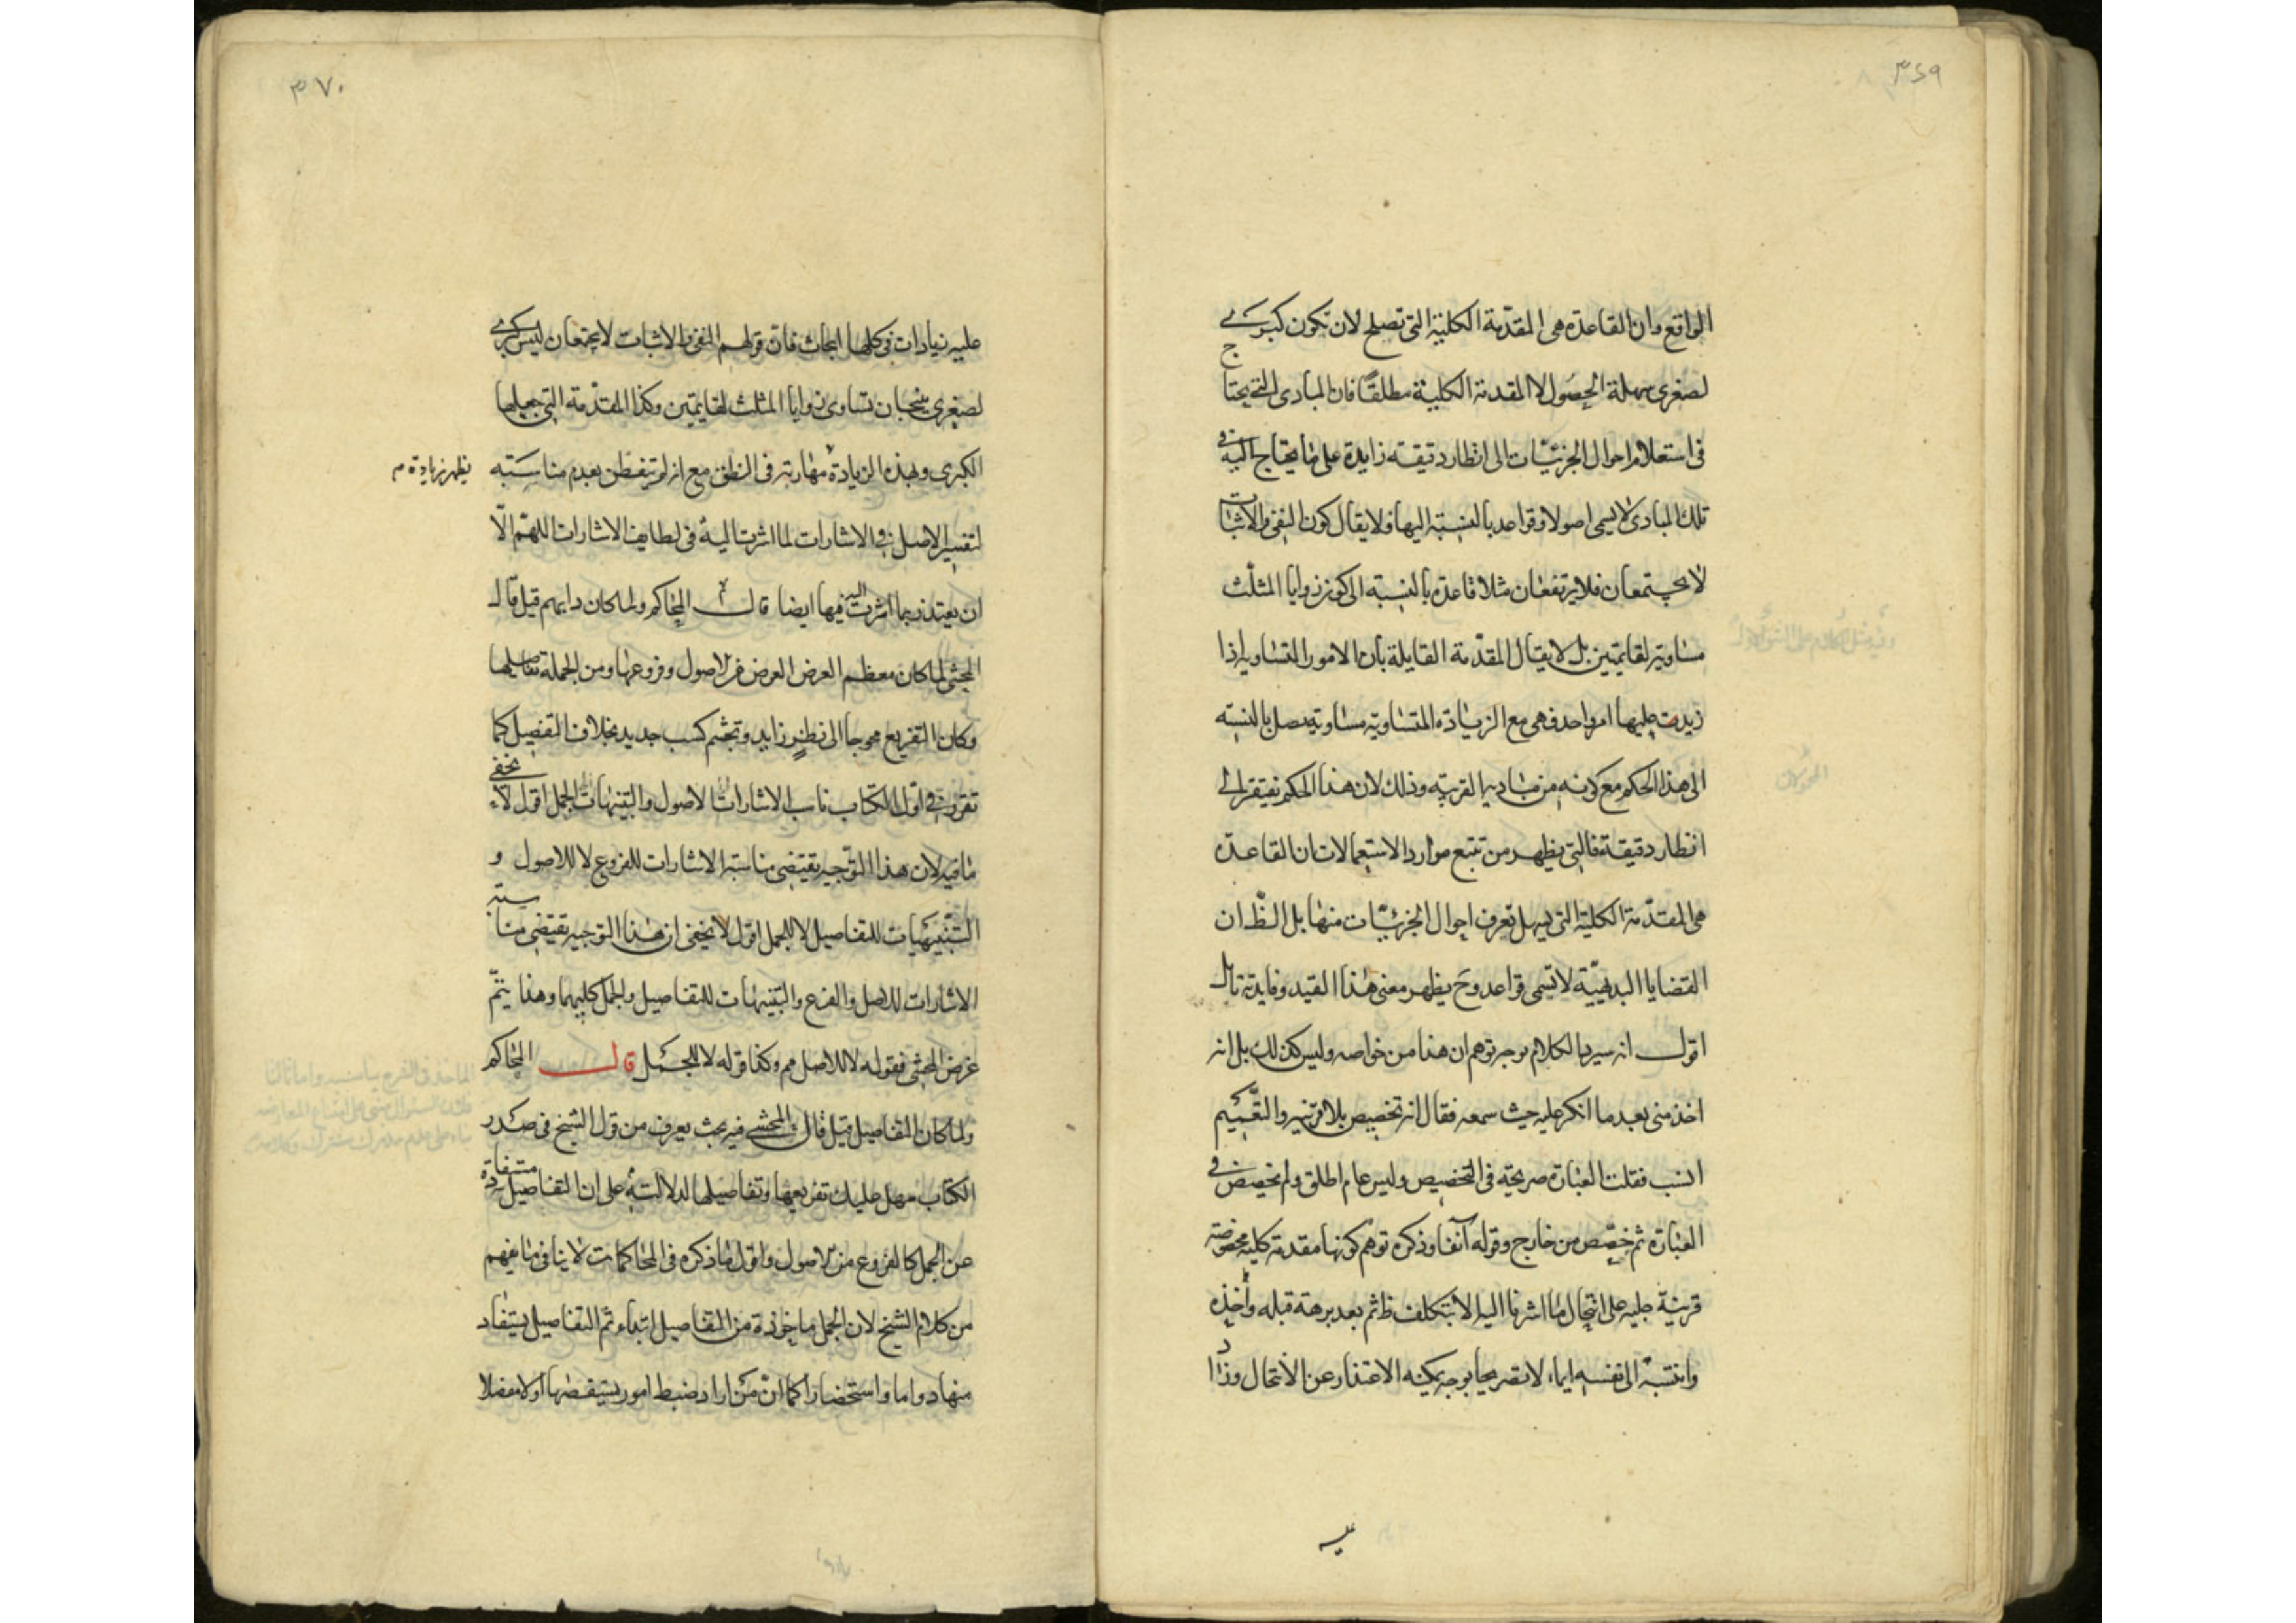 ٣٦٩
الواقع وان القاعدة هى المقدّمة الكلية التى تصلح لان تكون كبرى
لصغرى سهلة الحصول لا المقدمة الكلية مطلقًا فان المبادى التى يحتاج
فى استعلام احوال الجزئيات الى انظار دقيقة زايدة على ما يحتاج اليه فى
تلك المبادى لا يسمى اصولا وقواعد بالنسبة اليها ولا يقال كون النفى والاثبات
لا يجتمعان فلا يرتفعان مثلا قاعدة بالنسبة الى كون زوايا المثلث
مساوية لقايمتين بل لا يقال المقدّمة القايلة بان الامور المتساوية اذا
زيدت عليها امر واحد فهى مع الزيادة المتساوية مساوية اصل بالنسبة
الى هذا الحكم مع كونه من مباديها القريبة وذلك لان هذا الحكم يفتقر الى
انظار دقيقة فالتى يظهر من تتبع موارد الاستعمالات ان القاعدة
هى المقدّمة الكلية التى يسهل تعرف احوال الجزئيّات منها بل الظ ان
القضايا البديهيّة لا تسمى قواعد وح يظهر معنى هذا القيد وفايدته تأمل
اقول انه سيرد الكلام بوجه توهم ان هذا من خواصه وليس كذلك بل انه
اخذ منى بعد ما انكر عليه حيث سمعه فقال انه تخصيص بلا قرينة والتعميم
انسب فقلت العبارة صريحة فى التخصيص وليس عام اطلق ولم تخصيص فى
العبارة ثم خصّص من خارج وقوله آنفا وذكره توهم كونها مقدمة كلية مخصوصة
قرينة جلية على انتحال ما اشرنا اليه لا بتكلف ظ ثم بعد برهة قبله واخذه
وانتسبه الى نفسه ايماء لا تصريحا بوجه يمكنه الاعتذار عن الانتحال وزاد
عليه
٣٧٠
عليه زيادات فى كلها ابحاث فان قولهم النفى والاثبات لا يجتمعان ليس كبرى
لصغرى ينتجان تساوى زوايا المثلث لقايمتين وكذا المقدّمة التى جعلها
الكبرى وبهذه الزيادة مهارته فى المنطق مع انه لم يتفطن بعدم مناسبته
يظهر زيادة م
لتفسير الاصل فى الاشارات لما اشرت اليه فى لطايف الاشارات اللهمّ الّا
ان يعتذر بما اشرت اليه فيها ايضا قال المحاكم ولما كان دابهم قيل قال
المحشى لما كان معظم الغرض الغرض من الاصول وفروعها ومن الجملة تفاصيلها
وكان التفريع محوجا الى نظر زايد وتجشم كسب جديد بخلاف التفصيل كما
تقرر فى اول الكتاب ناسب الاشارات الاصول والتنبيهات الجمل اقول لا يخفى
ما فيه لان هذا التوجيه يقتضى مناسبة الاشارات للفروع لا للاصول و
التنبيهيات للتفاصيل لا للجمل اقول لا يخفى ان هذا التوجيه يقتضى مناسبة
الاشارات للاصل والفرع والتنبيهات للتفاصيل والجمل كليهما وهذا يتمّ
غرض المحشى فقوله لا للاصل مم وكذا قوله لا للجمل قال المحاكم
ولما كان التفاصيل قيل قال المحشى فيه بحث يعرف من قول الشيخ فى صدر
الكتاب سهل عليك تفريعها وتفاصيلها لدلالته على ان التفاصيل مستفادة
عن الجمل كالفروع من الاصول واقول ما ذكره فى المحاكمات لا ينافى ما يفهم
من كلام الشيخ لان الجمل ماخوذة من التفاصيل ابتداء ثم التفاصيل يستفاد
منها دواما واستحضارا كما انّ من اراد ضبط امور يستقصها اولا مفصلا